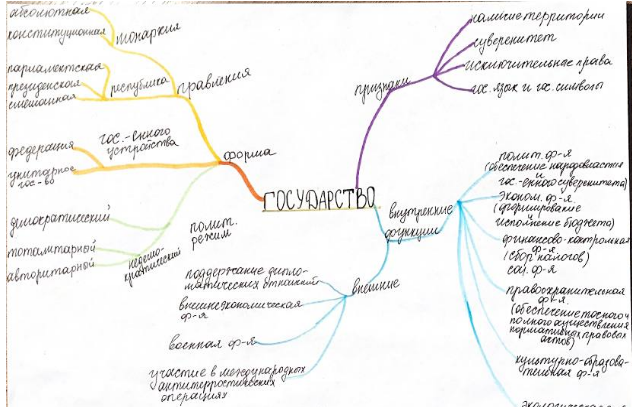 абсолютная
конституционная
монархия
парламентская
президенская
смешанная
республика
правления
федерация
унитарное
гос-во
гос.-енного
устройства
форма
демократический
тоталитарной
авторитарной
недемо-
кратический
полит.
режим
ГОСУДАРСТВО
признаки
наличие территории
суверенитет
исключительное права
гос. язык и гос. символы
внутренние
функции
полит. ф-я
(обеспечение народовластия
и
гос-енного суверенитета)
эконом. ф-я
(формирование
исполнение бюджета)
финансово-контрольная
ф-я
(сбор налогов)
соц. ф-я
правоохранительная
ф-я.
(обеспечение точного и
полного осуществления
нормативных правовых
актов)
культурно-образова-
тельная ф-я
внешние
поддержание дипло-
матических отношений
внешнеэкономическая
ф-я
военная ф-я
участие в международных
антитеррористических
операциях